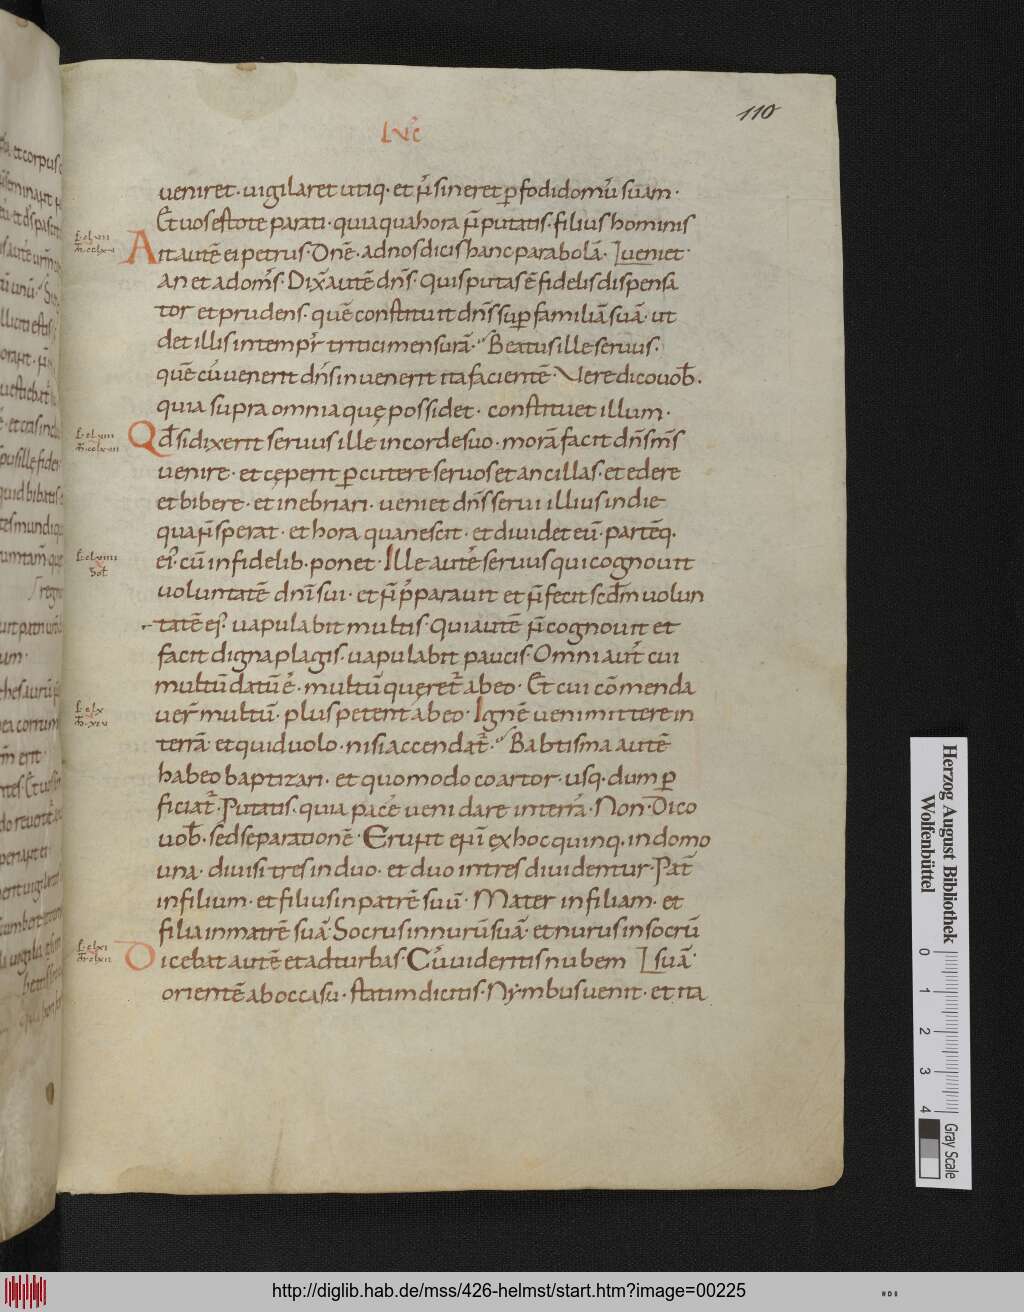 110
LVC
ueniret· uigilaret utiq· et n̄ sineret ꝑfodi domū suam·
Et uos estote parati· quia qua hora n̄ putatis· filius hominis
Ait autē ei petrus· Dnē· ad nos dicis hanc parabolā·
an et ad om̄s· Dix̄ autē dn̄s· Quis putas ē fidelis dispensa
tor et prudens· quē constituit dn̄s suꝑ familiā suā· ut
det illis in tempr̄ tritici mensurā· Beatus ille seruus·
quē cū uenerit dn̄s inuenerit ita facientē· Vere dico uob̄·
quia supra omnia quę possidet· constituet illum·
Qd̄ si dixerit seruus ille in corde suo· morā facit dn̄s m̄s
uenire· et cęperit ꝑcutere seruos et ancillas· et edere
et bibere· et inebriari· ueniet dn̄s serui illius in die
qua n̄ sperat· et hora qua nescit· et diuidet eū· partēq·
ei᾽ cū infidelib· ponet· Ille autē seruus qui cognouit
uoluntatē dn̄i sui· et n̄ p̄parauit et n̄ fecit scd̄m uolun
tatē ei᾽ uapulabit multis· Qui autē n̄ cognouit et
facit digna plagis· uapulabit paucis· Omni aut̄ cui
multū datū ē· multū quęret̄ ab eo· Et cui cōmenda
uer̄ multū· plus petent ab eo· Ignē ueni mittere in
terrā· et quid uolo· nisi accendat̄· Babtisma autē
habeo baptizari· et quomodo coartor· usq· dum ꝑ
ficiat̄· Putatis· quia pacē ueni dare in terrā· Non· Dico
uob̄· sed separationē· Erunt eni̅ ex hoc quinq· in domo
una· diuisi tres in duo· et duo in tres diuidentur· Pat̄
in filium· et filius in patrē suū· Mater in filiam· et
filia in matrē suā· Socrus in nurū suā· et nurus in socrū
Dicebat autē et ad turbas· Cū uideritis nubem
orientē ab occasu· statim dicitis· Nymbus uenit· et ita
Herzog August Bibliothek
Wolfenbüttel
0 1 2 3 4
Gray Scale
http://diglib.hab.de/mss/426-helmst/start.htm?image=00225